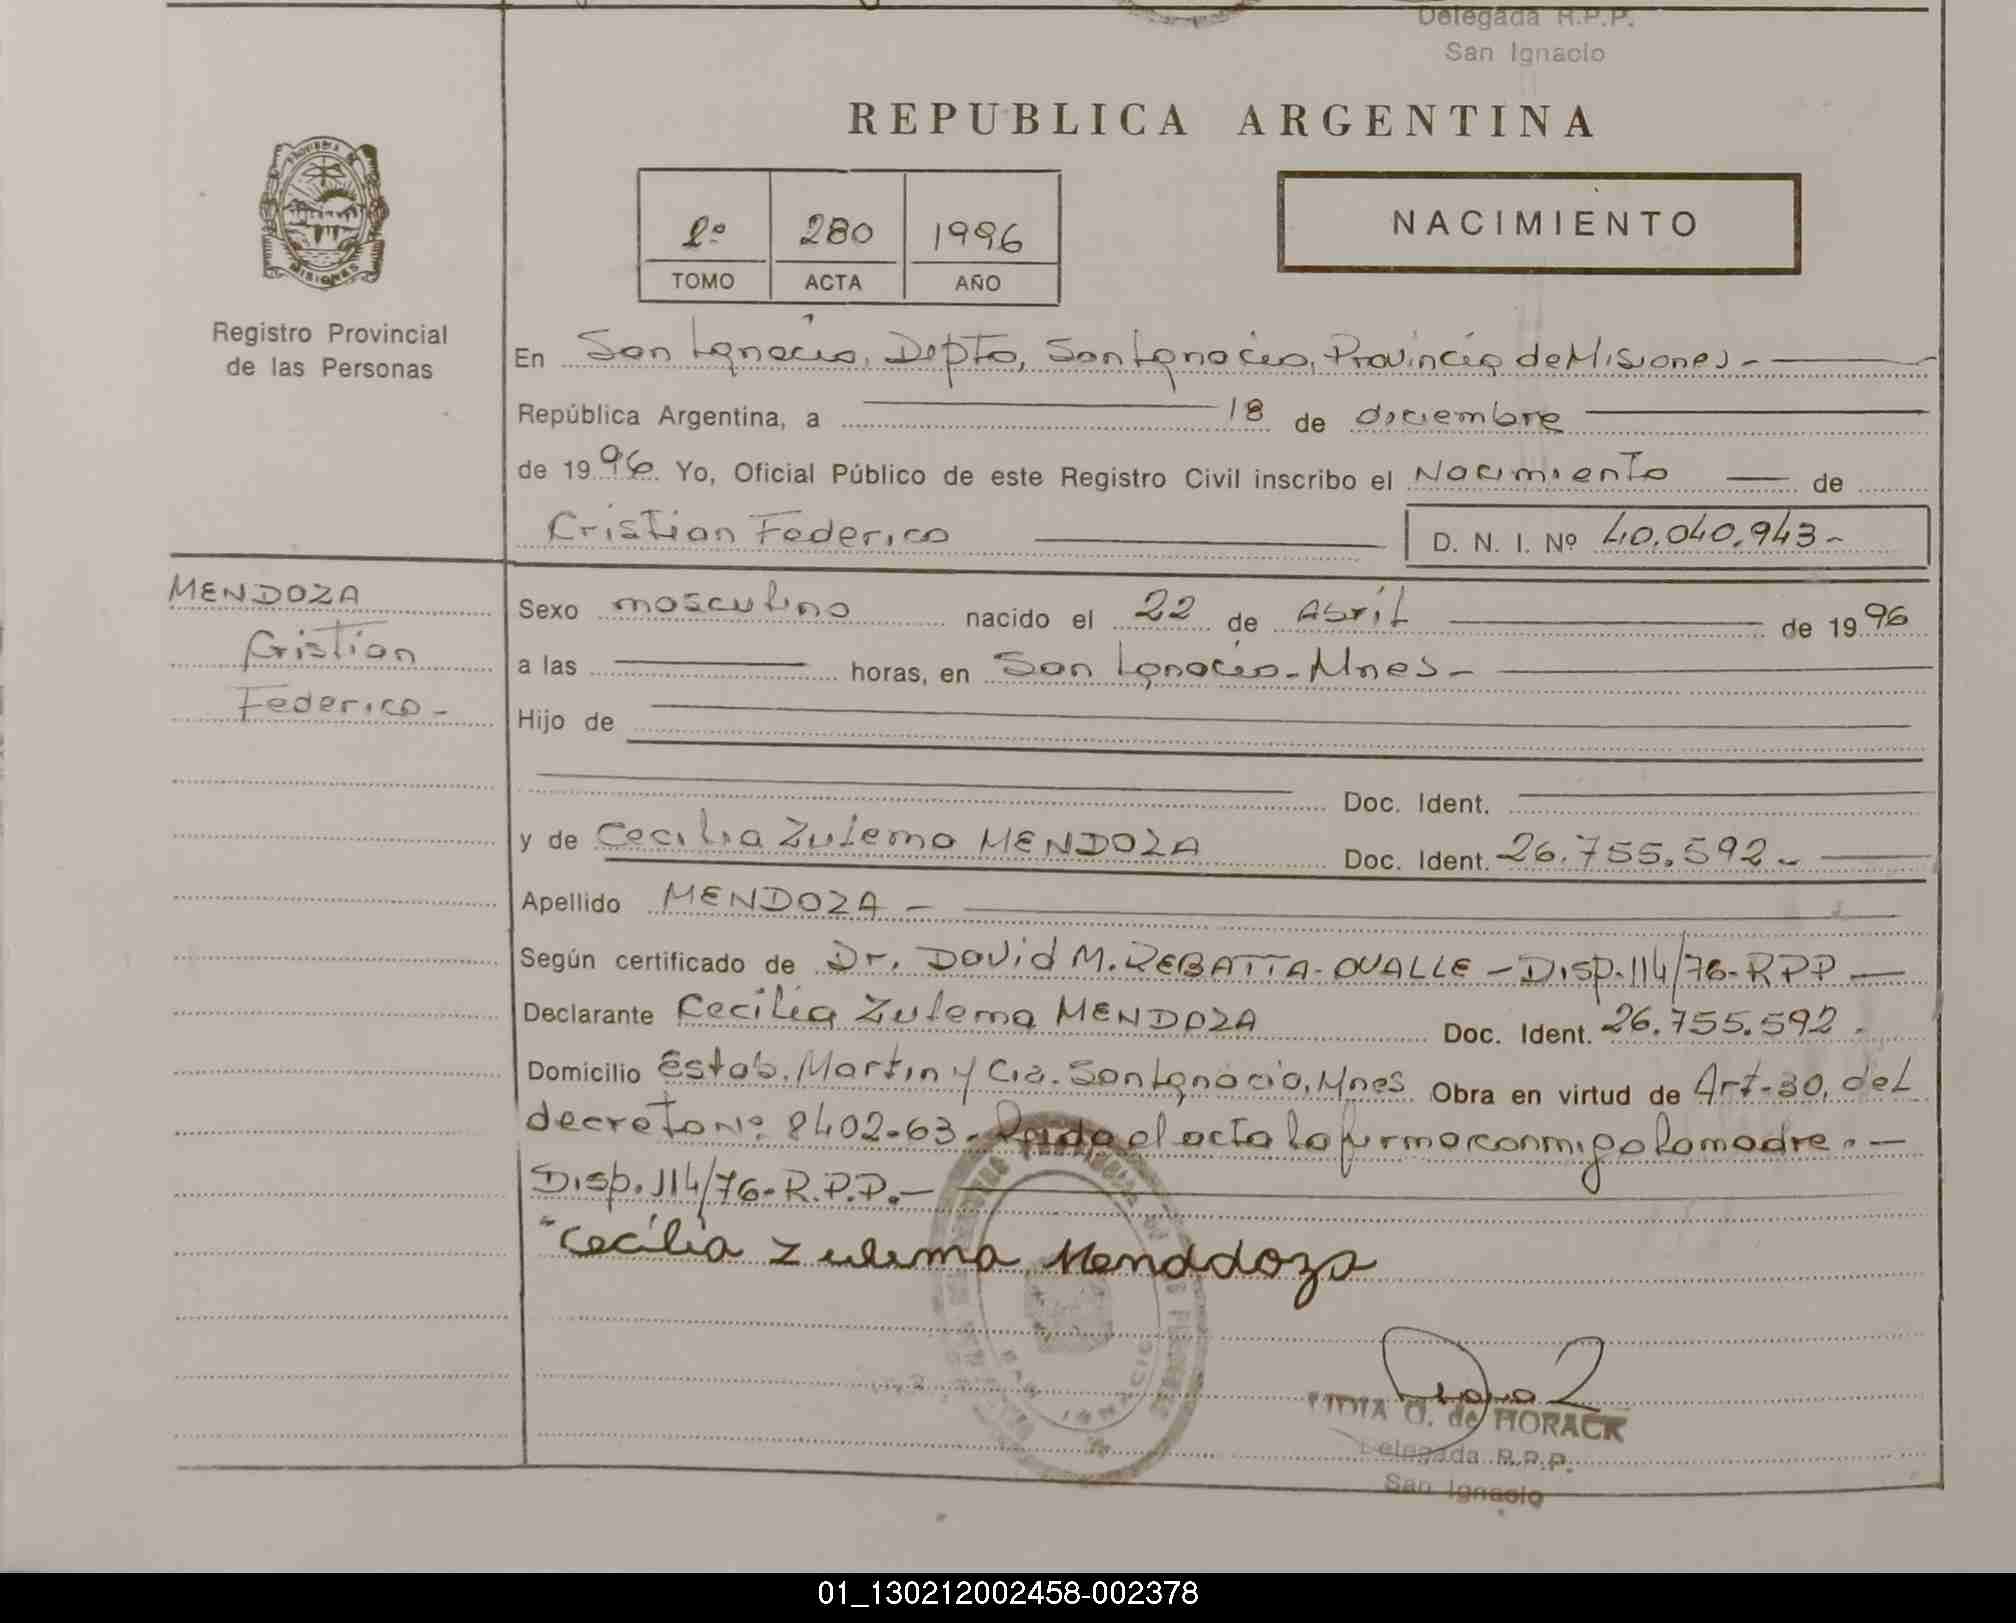 Delegada R.P.P.
San Ignacio
REPUBLICA ARGENTINA
PROVINCIA DE
MISIONES
2º 280 1996
TOMO ACTA AÑO
NACIMIENTO
Registro Provincial
de las Personas
En San Ignacio, Depto, San Ignacio, Provincia de Misiones -
República Argentina, a 18 de diciembre
de 1996 Yo, Oficial Público de este Registro Civil inscribo el Nacimiento de
Cristian Federico D. N. I. Nº 40.040.943-
MENDOZA
Cristian
Federico-
Sexo masculino nacido el 22 de Abril de 1996
a las horas, en San Ignacio-Mnes-
Hijo de
Doc. Ident.
y de Cecilia Zulema MENDOZA Doc. Ident. 26.755.592-
Apellido MENDOZA -
Según certificado de Dr. David M. REBATTA-OVALLE - Disp. 114/76-RPP
Declarante Cecilia Zulema MENDOZA Doc. Ident. 26.755.592.
Domicilio Estab. Martin y Cia. San Ignacio, Mnes Obra en virtud de Art-30, del
decreto Nº 8402-63- Leida el acta la firma conmigo la madre.-
Disp. 114/76-R.P.P.-
Cecilia Zulema Menddoza
LIDIA O. de HORACK
Delegada R.P.P.
San Ignacio
01_130212002458-002378